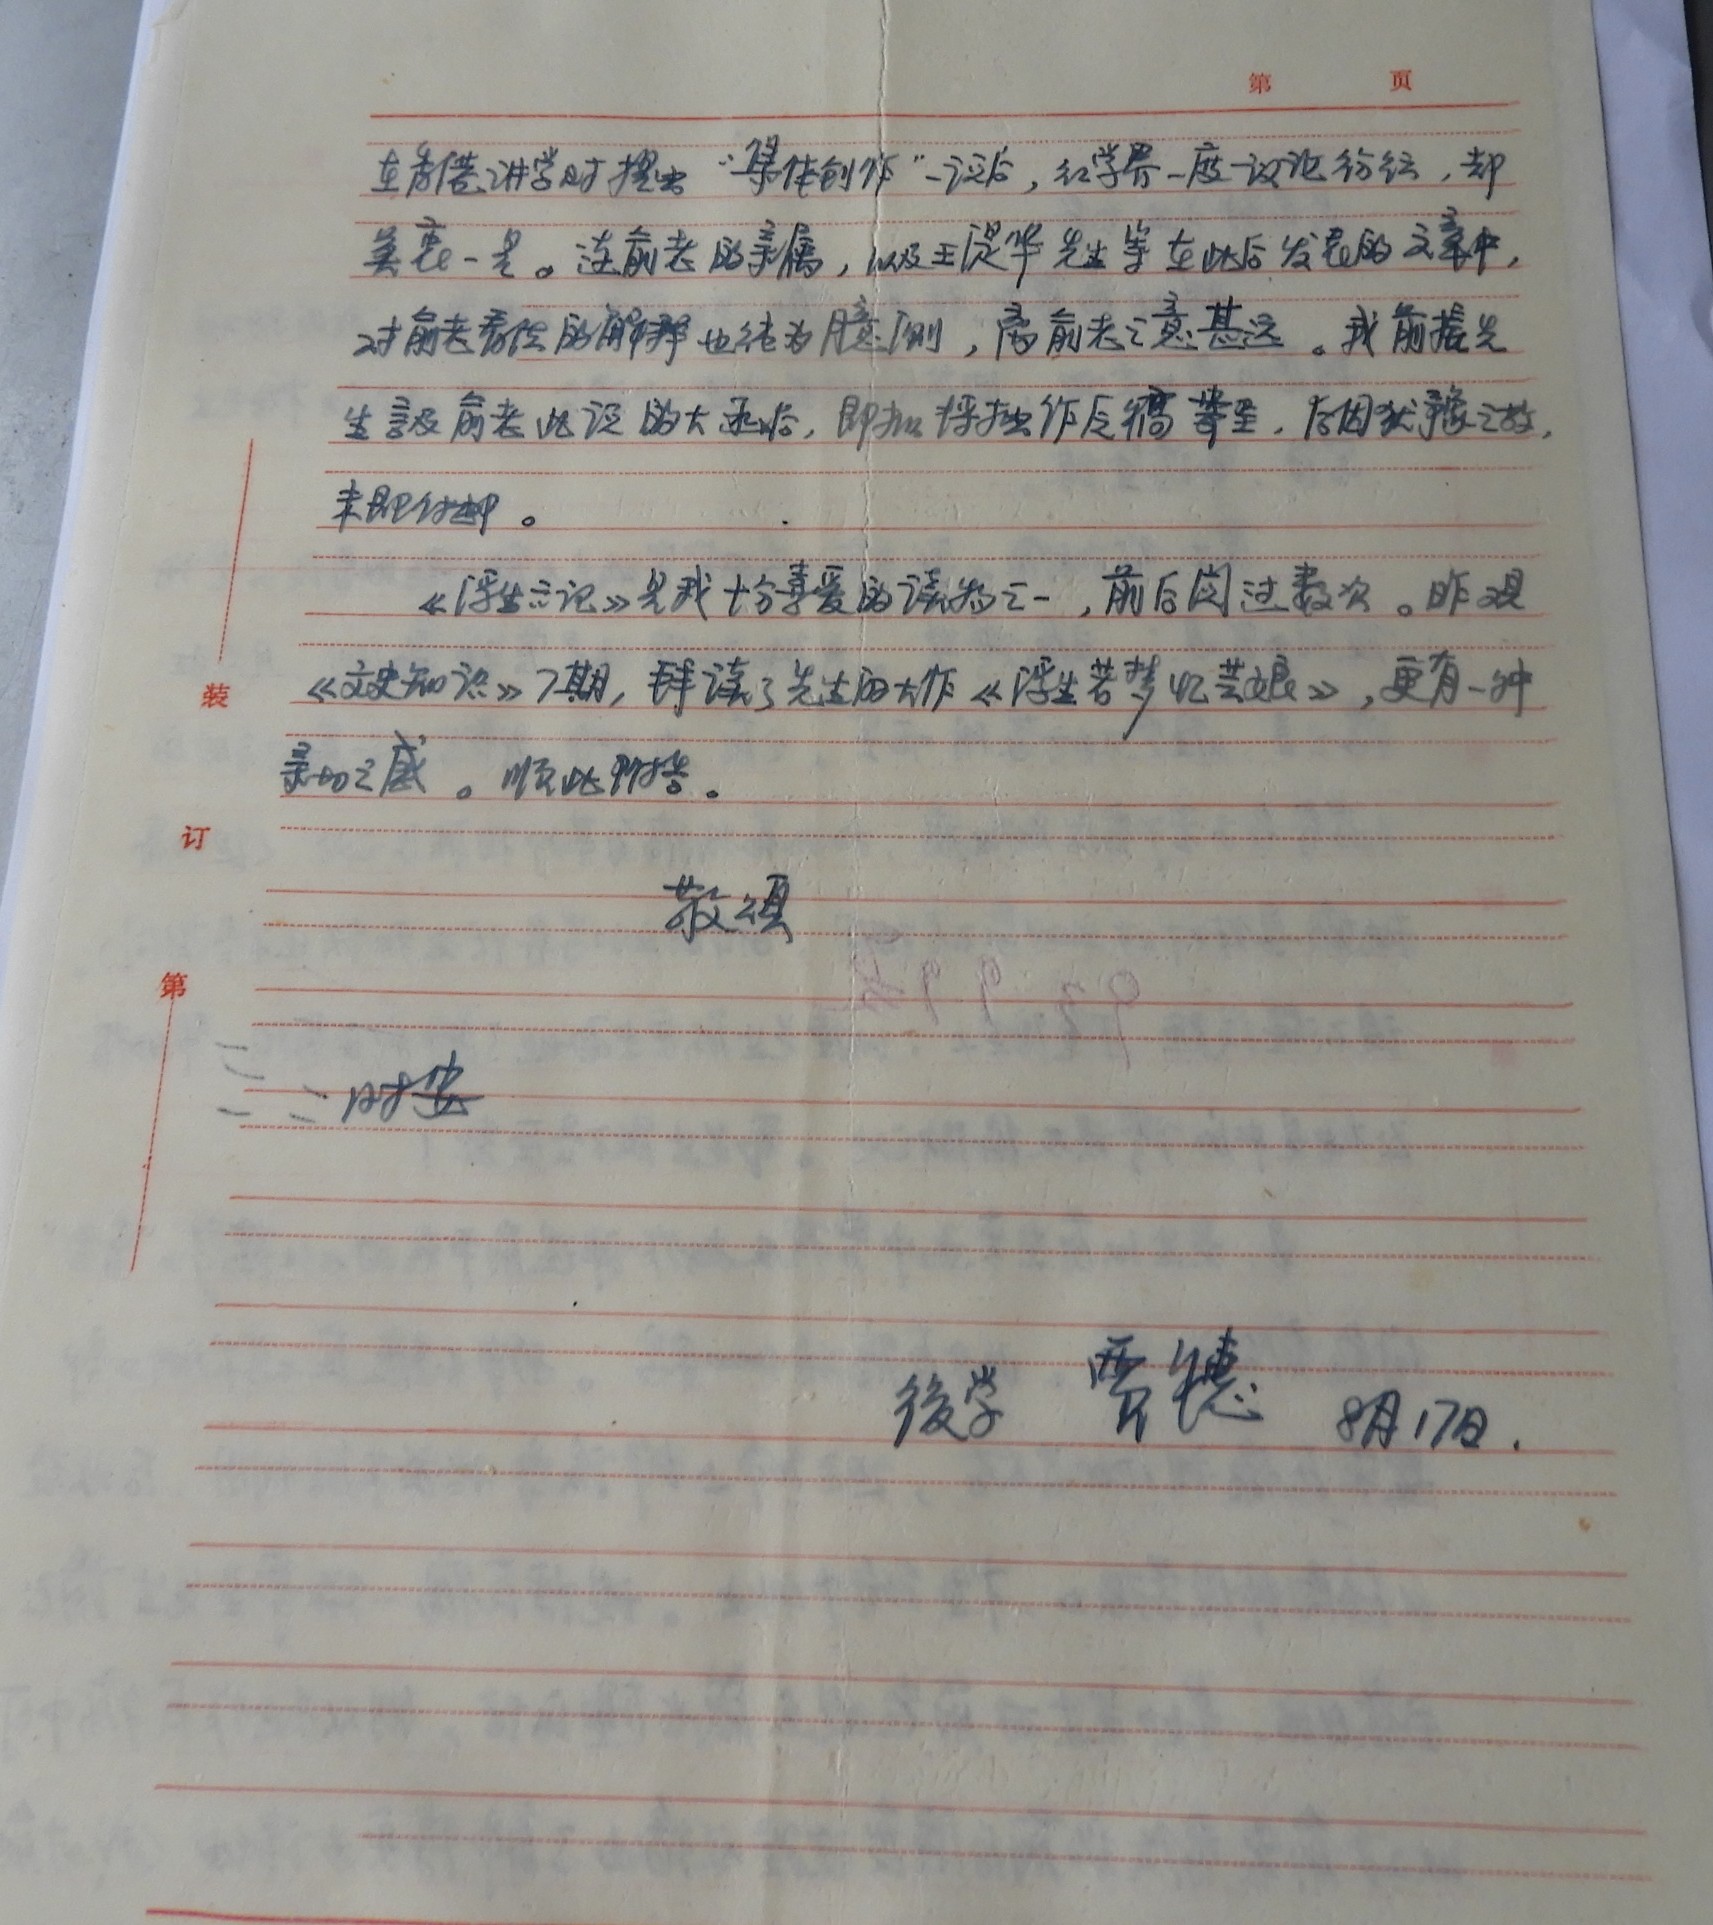 第 页
在香港讲学时提出“集体创作”一说后，红学界一度议论纷纭，却
莫衷一是。连俞老的亲属，以及王湜华先生等在此后发表的文章中，
对俞老看法的解释也纯为臆测，离俞老之意甚远。我前接先
生言及俞老此说的大函后，即拟将拙作反稿寄呈，后因犹豫之故，
未即付邮。
《浮生六记》是我十分喜爱的读物之一，前后阅过数次。昨观
《文史知识》7期，拜读了先生的大作《浮生若梦忆芸娘》，更有一种
亲切之感。顺此附告。
装
订
敬颂
第
时安
後学 贾穗 8月17日.